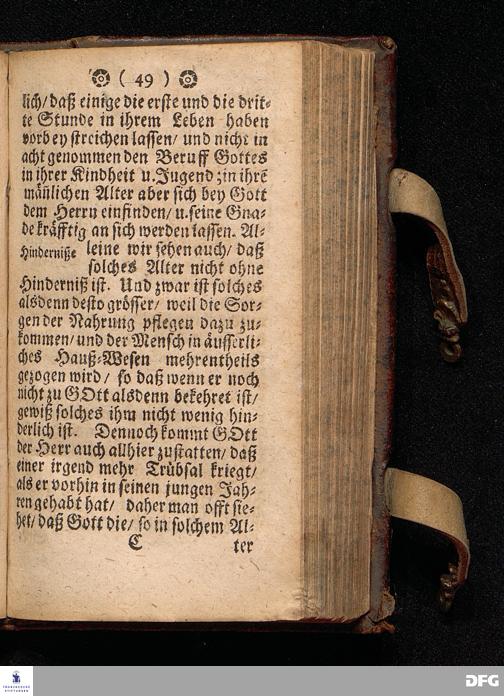 ( 49 )
lich/ daß einige die erste und die drit-
te Stunde in ihrem Leben haben
vorbey streichen lassen/ und nicht in
acht genommen den Beruff Gottes
in ihrer Kindheit u. Jugend; in ihrē
mäñlichen Alter aber sich bey Gott
dem Herrn einfinden/ u. seine Gna-
de kräfftig an sich werden lassen. Al-
Hinderniße
leine wir sehen auch/ daß
solches Alter nicht ohne
Hinderniß ist. Und zwar ist solches
alsdenn desto grösser/ weil die Sor-
gen der Nahrung pflegen dazu zu-
kommen/ und der Mensch in äusserli-
ches Hauß-Wesen mehrentheils
gezogen wird/ so daß wenn er noch
nicht zu GOtt alsdenn bekehret ist/
gewiß solches ihm nicht wenig hin-
derlich ist. Dennoch kommt GOtt
der Herr auch allhier zustatten/ daß
einer irgend mehr Trübsal kriegt/
als er vorhin in seinen jungen Jah-
ren gehabt hat/ daher man offt sie-
het/ daß Gott die/ so in solchem Al-
C ter
FRANCKESCHE
STIFTUNGEN
DFG